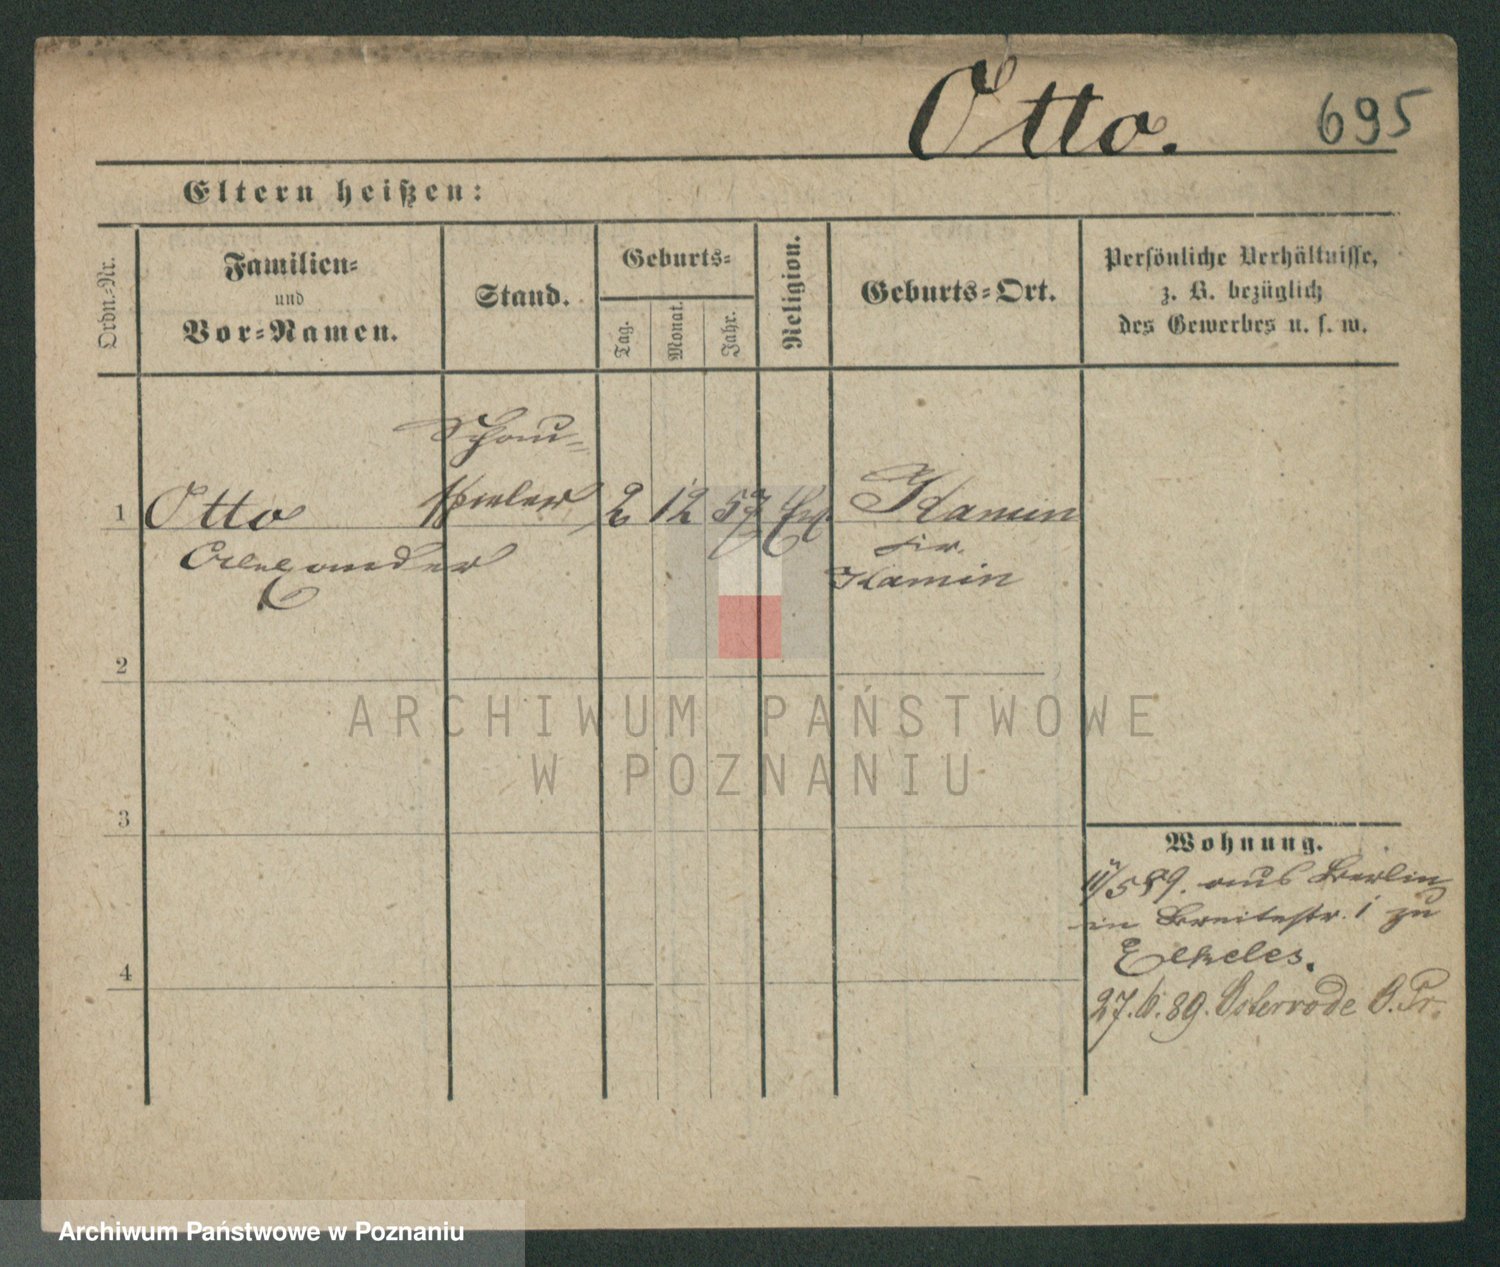 Otto. 695
Eltern heißen:
Ordn.=Nr.
Familien=
und
Vor=Namen.
Stand.
Geburts=
Tag.
Monat.
Jahr.
Religion.
Geburts=Ort.
Persönliche Verhältnisse,
z. B. bezüglich
des Gewerbes u. s. w.
Schau=
1 Otto spieler 2 12 57 Kamin
Alexander
Kamin
2
ARCHIWUM PAŃSTWOWE
W POZNANIU
3
Wohnung.
aus Berlin
in Breitestr. 1 zu
Elkeles.
4
27.6.89. Osterode O.Pr.
Archiwum Państwowe w Poznaniu